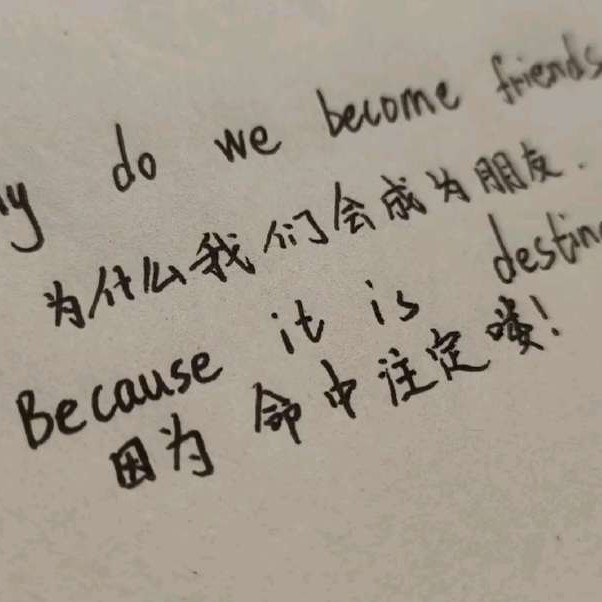 y do we become friends
为什么我们会成为朋友.
Because it is destin
因为 命中注定喽!